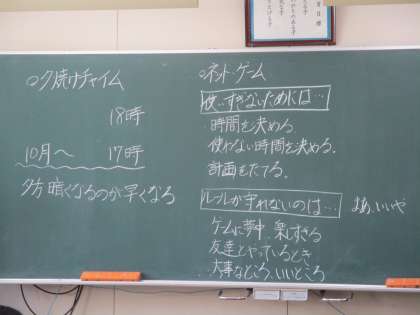 ○夕焼けチャイム
18時
10月〜 17時
夕方暗くなるのが早くなる
○ネット・ゲーム
使いすぎないためには…
・時間を決める
・使わない時間を決める。
・計画をたてる。
ルールが守れないのは…
まあ、いいや
ゲームに夢中 楽しすぎる
友達とやっているとき
大事なところ、いいところ